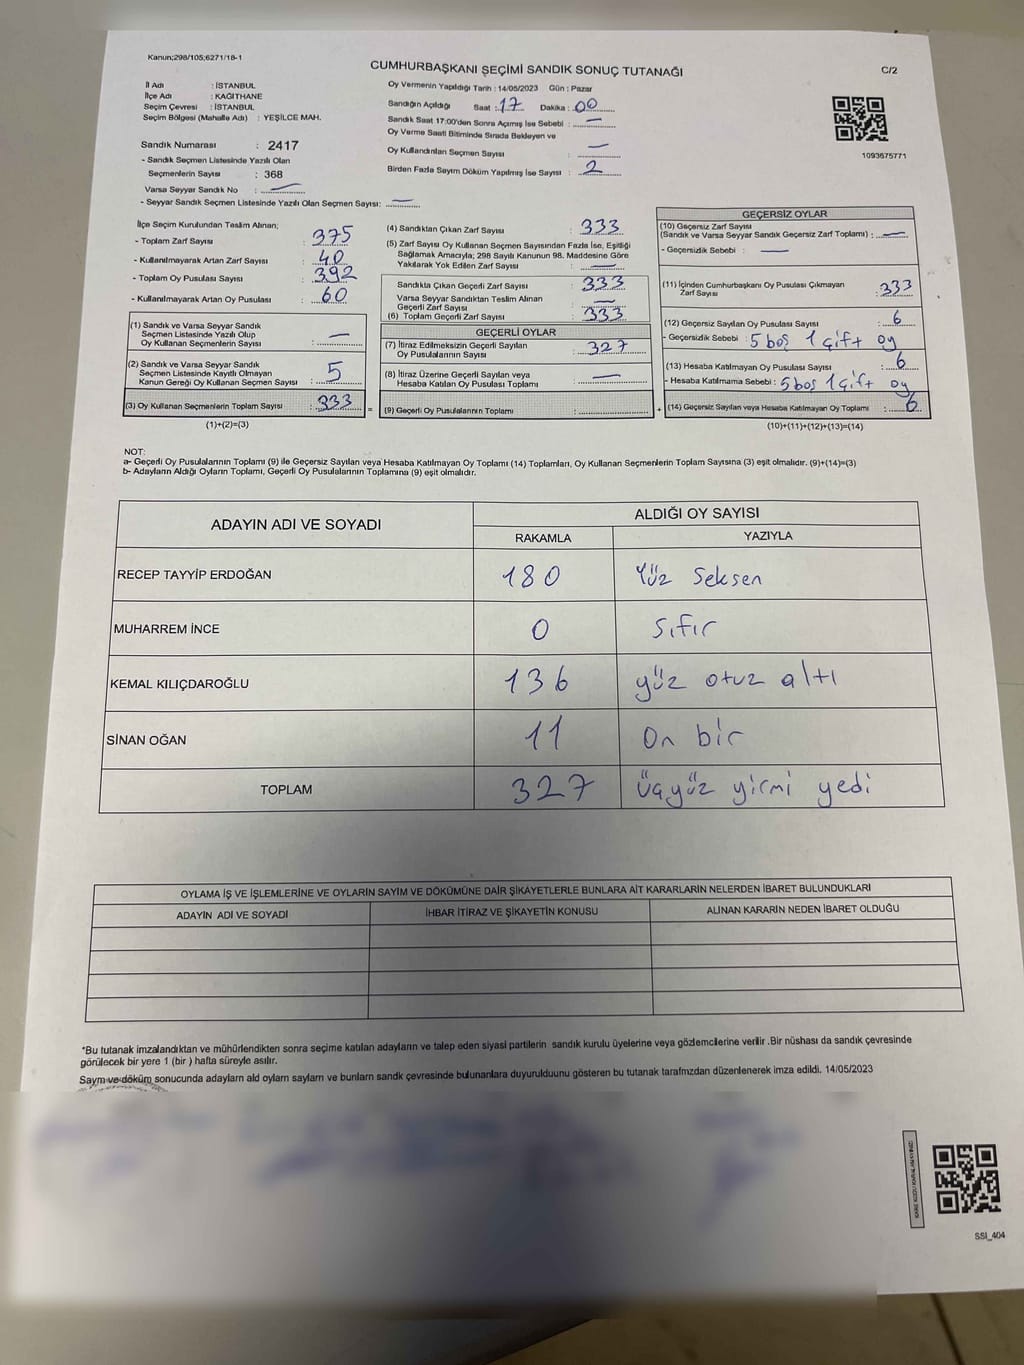 Kanun;298/105;6271/18-1
CUMHURBAŞKANI SEÇİMİ SANDIK SONUÇ TUTANAĞI
C/2
İl Adı : İSTANBUL
İlçe Adı : KAĞITHANE
Seçim Çevresi : İSTANBUL
Seçim Bölgesi (Mahalle Adı) : YEŞİLCE MAH.
Sandık Numarası : 2417
- Sandık Seçmen Listesinde Yazılı Olan
Seçmenlerin Sayısı : 368
Varsa Seyyar Sandık No : —
- Seyyar Sandık Seçmen Listesinde Yazılı Olan Seçmen Sayısı: —
Oy Vermenin Yapıldığı Tarih : 14/05/2023 Gün : Pazar
Sandığın Açıldığı Saat : 17 Dakika : 00
Sandık Saat 17:00'den Sonra Açılmış İse Sebebi : —
Oy Verme Saati Bitiminde Sırada Bekleyen ve
Oy Kullandırılan Seçmen Sayısı : —
Birden Fazla Sayım Döküm Yapılmış İse Sayısı : 2
1093675771
İlçe Seçim Kurulundan Teslim Alınan;
- Toplam Zarf Sayısı : 375
- Kullanılmayarak Artan Zarf Sayısı : 40
- Toplam Oy Pusulası Sayısı : 392
- Kullanılmayarak Artan Oy Pusulası : 60
(1) Sandık ve Varsa Seyyar Sandık
Seçmen Listesinde Yazılı Olup
Oy Kullanan Seçmenlerin Sayısı : —
(2) Sandık ve Varsa Seyyar Sandık
Seçmen Listesinde Kayıtlı Olmayan
Kanun Gereği Oy Kullanan Seçmen Sayısı : 5
(3) Oy Kullanan Seçmenlerin Toplam Sayısı : 333
(1)+(2)=(3)
=
(4) Sandıktan Çıkan Zarf Sayısı : 333
(5) Zarf Sayısı Oy Kullanan Seçmen Sayısından Fazla İse, Eşitliği
Sağlamak Amacıyla; 298 Sayılı Kanunun 98. Maddesine Göre
Yakılarak Yok Edilen Zarf Sayısı : —
Sandıkta Çıkan Geçerli Zarf Sayısı : 333
Varsa Seyyar Sandıktan Teslim Alınan
Geçerli Zarf Sayısı : —
(6) Toplam Geçerli Zarf Sayısı : 333
GEÇERLİ OYLAR
(7) İtiraz Edilmeksizin Geçerli Sayılan
Oy Pusulalarının Sayısı : 327
(8) İtiraz Üzerine Geçerli Sayılan veya
Hesaba Katılan Oy Pusulası Toplamı : —
(9) Geçerli Oy Pusulalarının Toplamı :
+
GEÇERSİZ OYLAR
(10) Geçersiz Zarf Sayısı
(Sandık ve Varsa Seyyar Sandık Geçersiz Zarf Toplamı) : —
- Geçersizlik Sebebi : —
(11) İçinden Cumhurbaşkanı Oy Pusulası Çıkmayan
Zarf Sayısı : 333
(12) Geçersiz Sayılan Oy Pusulası Sayısı : 6
- Geçersizlik Sebebi : 5 boş 1 çift oy
(13) Hesaba Katılmayan Oy Pusulası Sayısı : 6
- Hesaba Katılmama Sebebi : 5 bos 1 çift oy
(14) Geçersiz Sayılan veya Hesaba Katılmayan Oy Toplamı : 6
(10)+(11)+(12)+(13)=(14)
NOT:
a- Geçerli Oy Pusulalarının Toplamı (9) ile Geçersiz Sayılan veya Hesaba Katılmayan Oy Toplamı (14) Toplamları, Oy Kullanan Seçmenlerin Toplam Sayısına (3) eşit olmalıdır. (9)+(14)=(3)
b- Adayların Aldığı Oyların Toplamı, Geçerli Oy Pusulalarının Toplamına (9) eşit olmalıdır.
ADAYIN ADI VE SOYADI ALDIĞI OY SAYISI
RAKAMLA YAZIYLA
RECEP TAYYİP ERDOĞAN 180 Yüz Seksen
MUHARREM İNCE 0 Sıfır
KEMAL KILIÇDAROĞLU 136 yüz otuz altı
SİNAN OĞAN 11 On bir
TOPLAM 327 üçyüz yirmi yedi
OYLAMA İŞ VE İŞLEMLERİNE VE OYLARIN SAYIM VE DÖKÜMÜNE DAİR ŞİKAYETLERLE BUNLARA AİT KARARLARIN NELERDEN İBARET BULUNDUKLARI
ADAYIN ADI VE SOYADI İHBAR İTİRAZ VE ŞİKAYETİN KONUSU ALINAN KARARIN NEDEN İBARET OLDUĞU
*Bu tutanak imzalandıktan ve mühürlendikten sonra seçime katılan adayların ve talep eden siyasi partilerin sandık kurulu üyelerine veya gözlemcilerine verilir .Bir nüshası da sandık çevresinde
görülecek bir yere 1 (bir ) hafta süreyle asılır.
Sayım ve döküm sonucunda adayların ald oyların sayları ve bunların sandk çevresinde bulunanlara duyurulduunu gösteren bu tutanak tarafmzdan düzenlenerek imza edildi. 14/05/2023
SSI_404